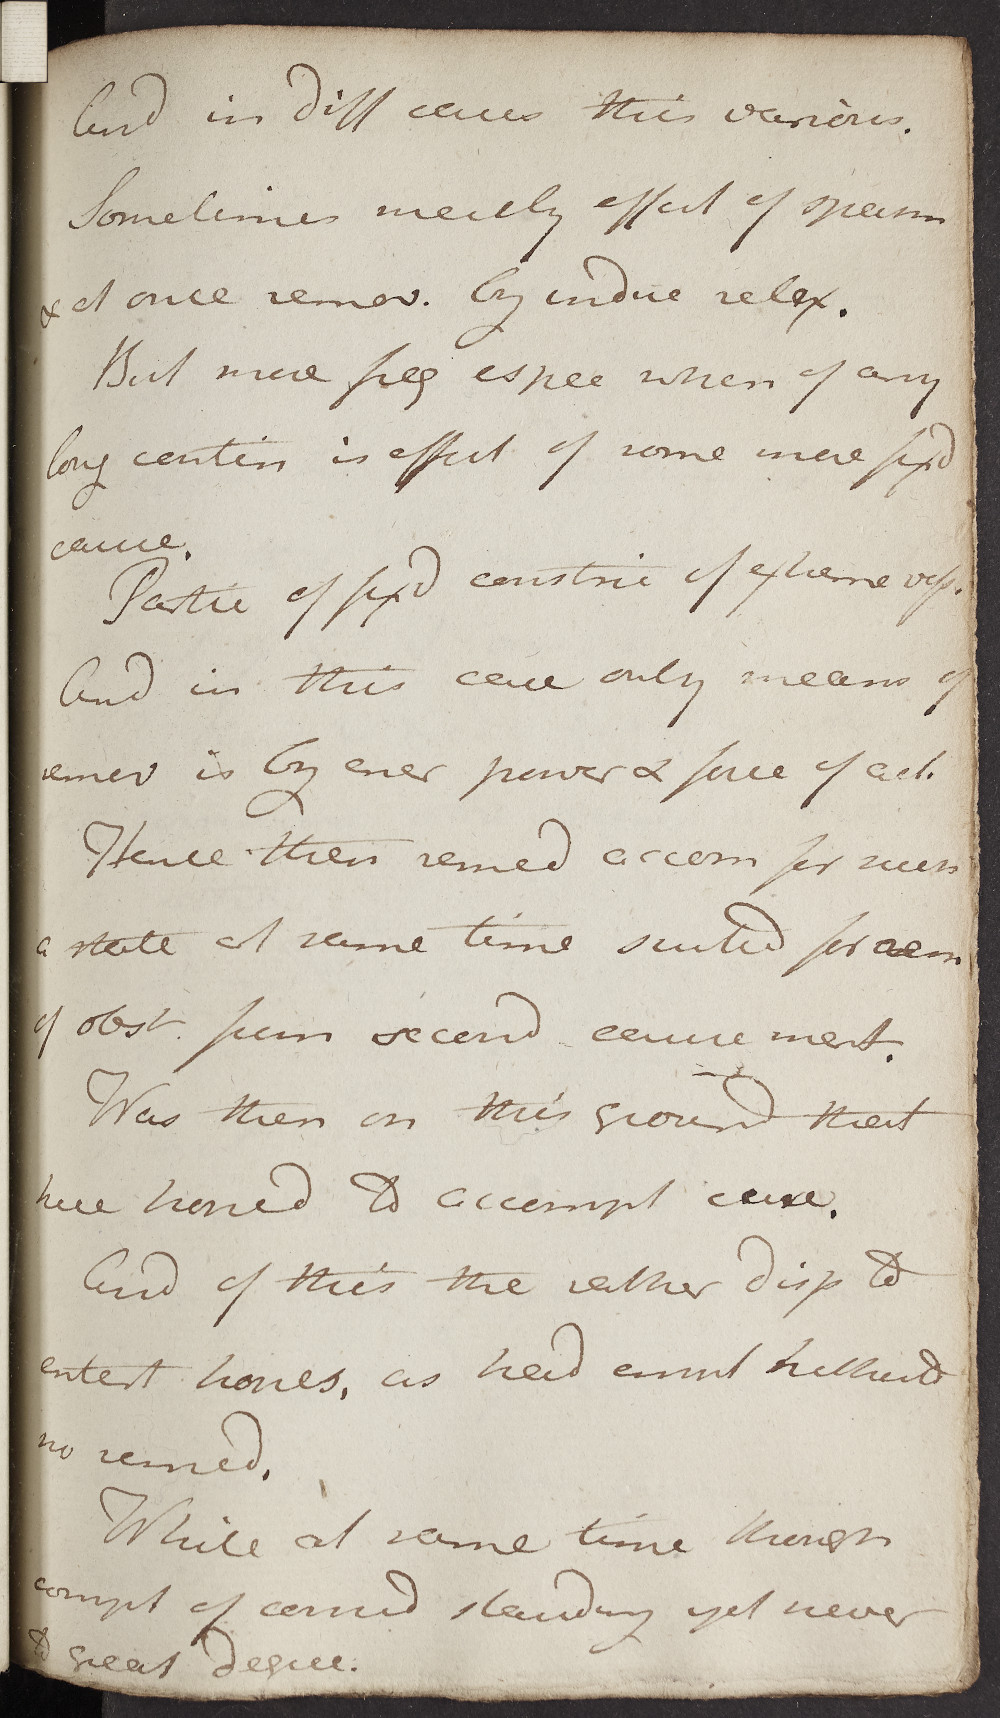 And in diff cases this various.
Sometimes merely effect of spasm
& at once remov. by induc relax.
But more freq espec when of any
long contin is effect of some more fix'd
cause.
Partic of fix'd constric of extreme vess.
And in this case only means of
remov is by ener power & force of act.
Hence then remed accom for such
a state at same time suited for rem
of obst from second cause ment.
Was then on this ground that
here hoped to accompt cure.
And of this the rather disp to
entert hopes, as had empl hitherto
no remed.
While at same time though
compt of consid standing yet never
to great degree.